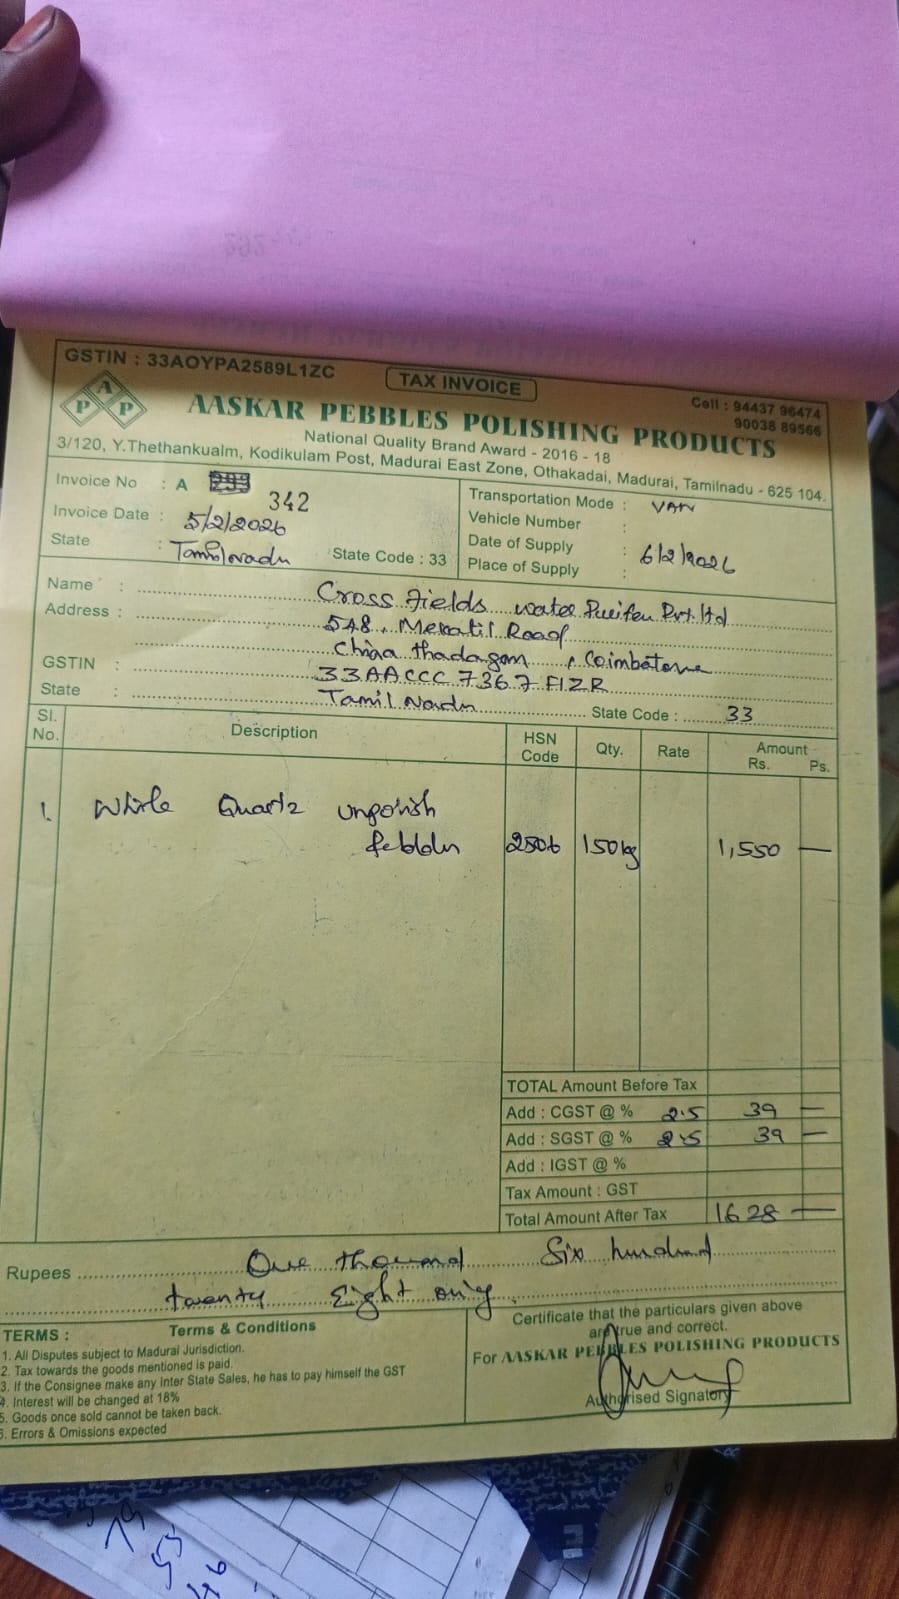 GSTIN : 33AOYPA2589L1ZC
TAX INVOICE
Cell : 94437 96474
90038 89566
A P P
AASKAR PEBBLES POLISHING PRODUCTS
National Quality Brand Award - 2016 - 18
3/120, Y.Thethankualm, Kodikulam Post, Madurai East Zone, Othakadai, Madurai, Tamilnadu - 625 104.
Invoice No : A 342
Invoice Date : 5/2/2026
State : Tamilnadu State Code : 33
Transportation Mode : VAN
Vehicle Number :
Date of Supply : 6/2/2026
Place of Supply :
Name : Cross fields water Pvt. ltd
Address : 548, Road
thadagam, Coimbatore
GSTIN : 33AACCC 7367 F1ZR
State : Tamil Nadu State Code : 33
Sl. No. Description HSN Code Qty. Rate Amount Rs. Ps.
1. White Quartz unpolish
2506 150kg 1,550 —
TOTAL Amount Before Tax
Add : CGST @ % 2.5 39 —
Add : SGST @ % 2.5 39 —
Add : IGST @ %
Tax Amount : GST
Total Amount After Tax 1628 —
Rupees One thousand Six hundred
twenty Eight only.
TERMS : Terms & Conditions
1. All Disputes subject to Madurai Jurisdiction.
2. Tax towards the goods mentioned is paid.
3. If the Consignee make any Inter State Sales, he has to pay himself the GST
4. Interest will be changed at 18%
5. Goods once sold cannot be taken back.
6. Errors & Omissions expected
Certificate that the particulars given above
are true and correct.
For AASKAR PEBBLES POLISHING PRODUCTS
Authorised Signatory